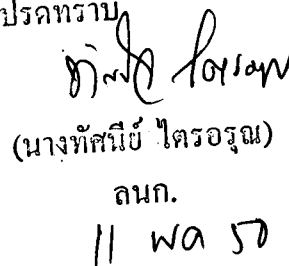 โปรดทราบ
(นางทัศนีย์ ไตรอรุณ)
ลนก.
11 พค 50